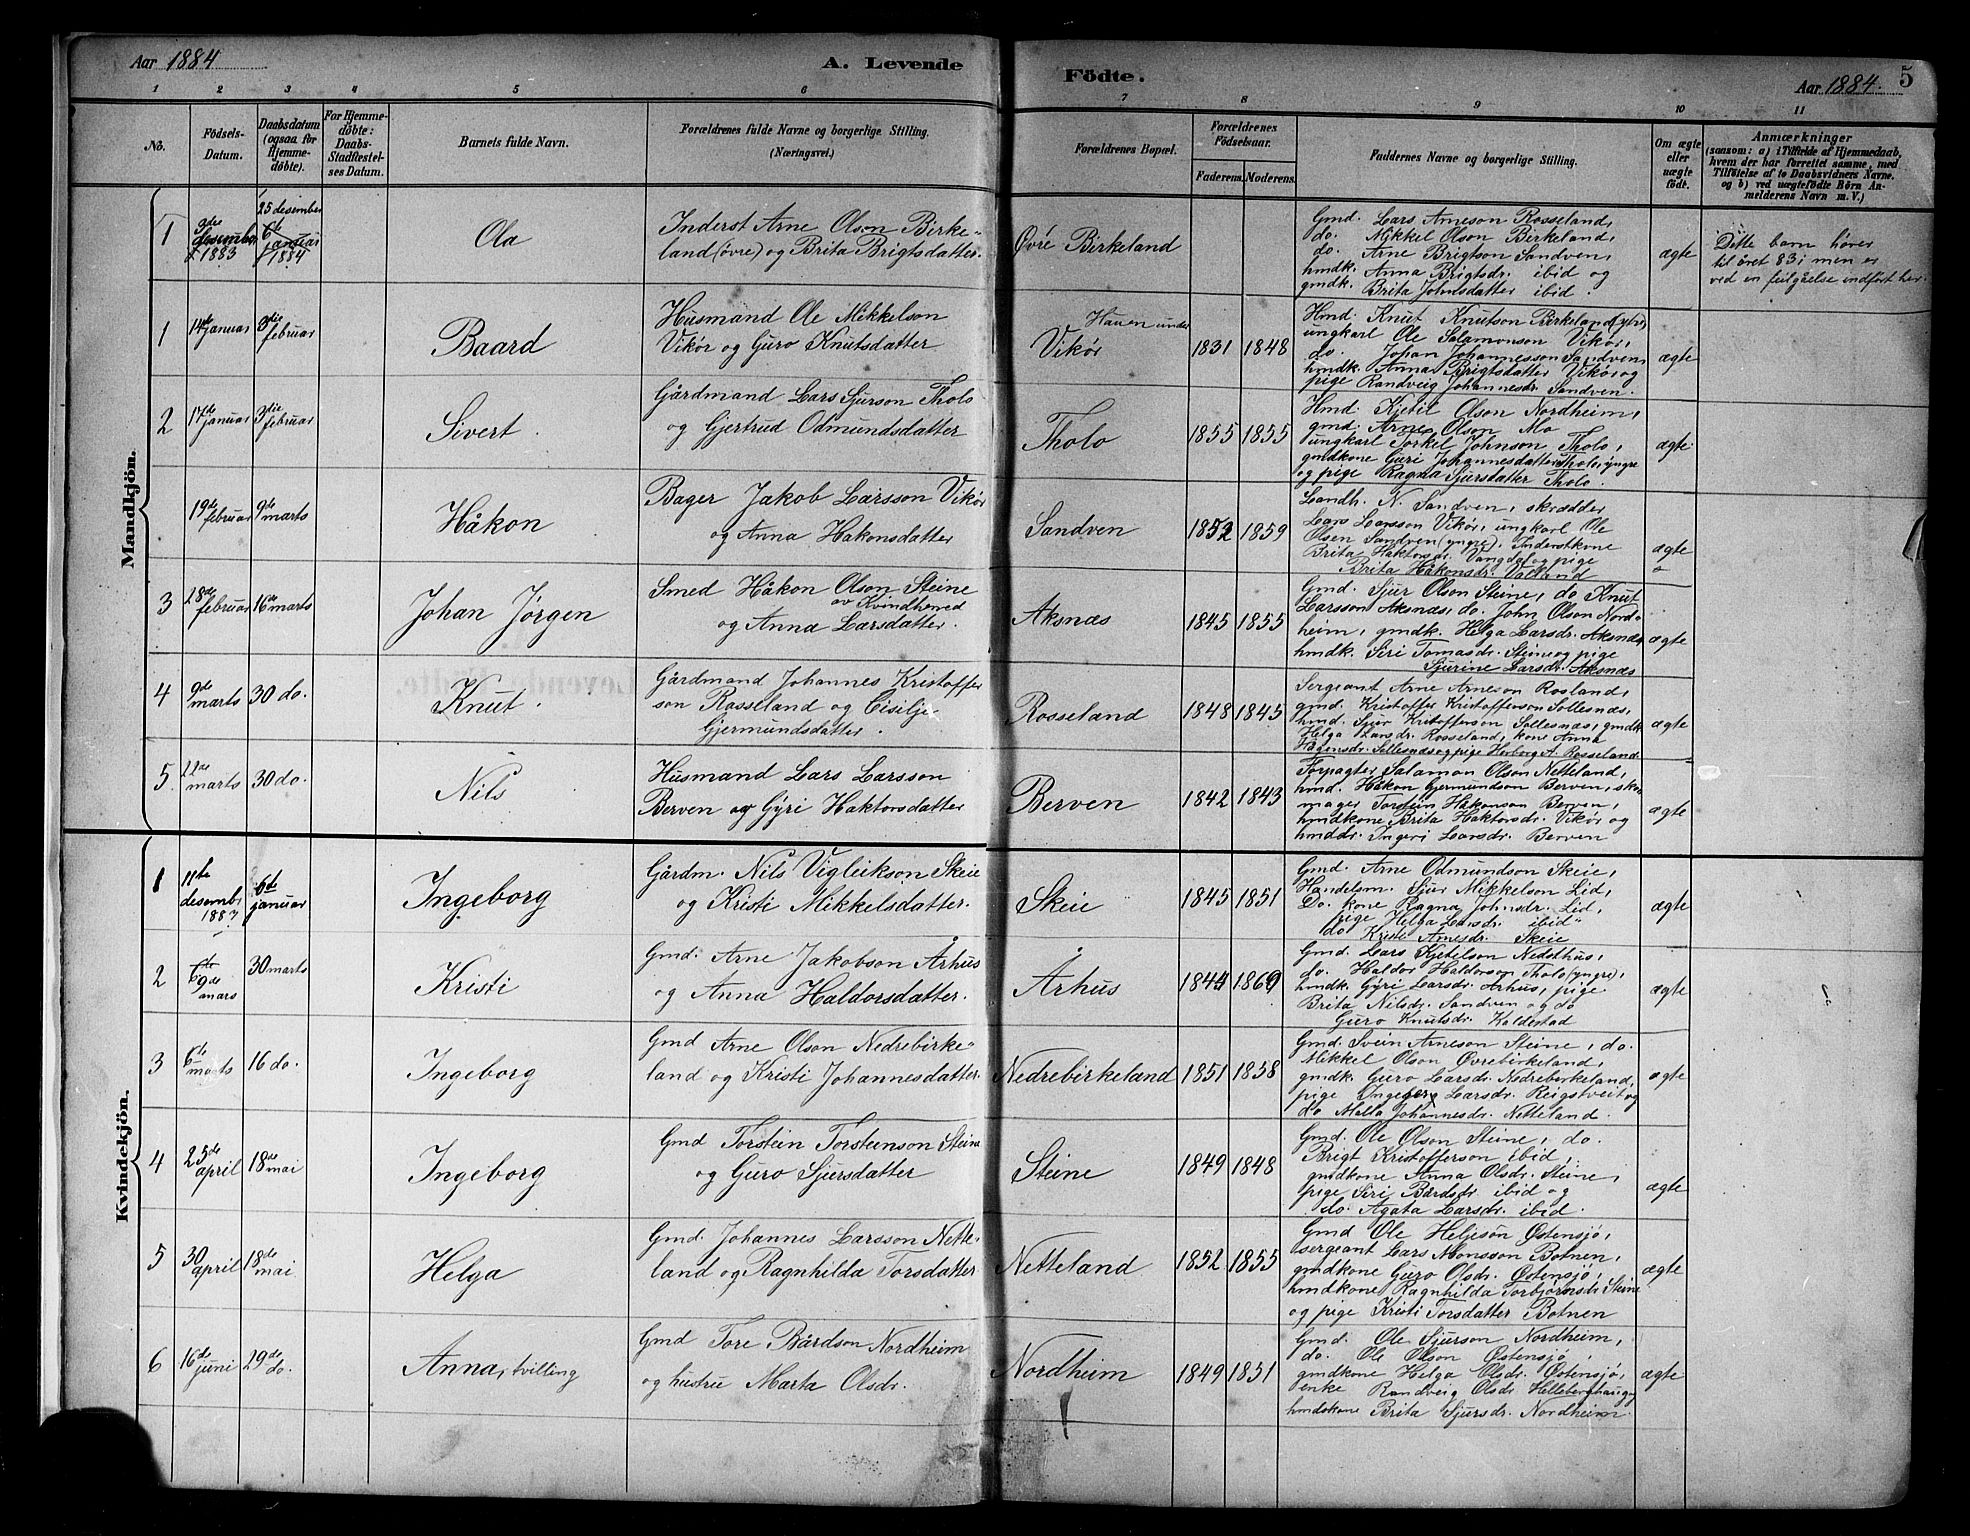 Aar 1884
A. Levende
Födte.
Aar 1884.
5
1 2 3 4 5 6 7 8 9 10 11
No.
Födsels-
Datum.
Daabsdatum
(ogsaa for
Hjemme-
døbte).
For Hjemme-
døbte:
Daabs-
Stadfæstel-
ses Datum.
Barnets fulde Navn.
Forældrenes fulde Navne og borgerlige Stilling.
(Næringsvei.)
Forældrenes Bopæl.
Forældrenes
Födselsaar.
Faderens. Moderens.
Faddernes Navne og borgerlige Stilling.
Om ægte
eller
uægte
födt.
Anmærkninger
(saasom: a) i Tilfælde af Hjemmedaab,
hvem der har forrettet samme, med
Tilföielse af to Daabsvidners Navne.
og b) ved uægtefödte Börn An-
melderens Navn m. V.)
Mandkjön.
1
desember
1883
25 desember
6te
januar
1884
Ola
Inderst Arne Olson Birke-
land (övre) og Brita Brigtsdatter.
Øvre Birkeland
Gmd. Lars Arneson Rosseland,
do. Mikkel Olson Birkeland,
do. Arne Brigtson Sandven,
hmdk. Anna Brigtsdr. ibid og
gmdk. Brita Johnsdatter ibid.
ægte
Dette barn hører
til året 83; men er
ved en feilgåelse indført her.
1
14de januar
3die
februar
Baard
Husmand Ole Mikkelson
Vikör og Guro Knutsdatter
Hauen under
Vikör
1831 1848
Hmd. Knut Knutson Birkeland
ungkarl Ole Salamonson Vikör,
do. Johan Johannesson Sandven,
hmdk. Anna Brigtsdatter Vikör og
pige Randveig Johannesdr. Sandven.
ægte
2
17de
januar
3die
februar
Sivert.
Gårdmand Lars Sjurson Tholo
og Gjertrud Odmundsdatter
Tholo
1855 1855
Hmd. Kjetil Olson Nordheim,
gmd. Arne Olson Mo
ungkarl Torkel Johnson Tholo,
gmdkone Guri Johannesdatter Tholo, yngre
og pige Ragna Sjursdatter Tholo.
ægte
19de
februar
9de
marts
Håkon
Bager Jakob Larsson Vikör
og Anna Hakonsdatter
Sandven
1852 1859
Landh. N. Sandven, skrædder
Lars Larsson Vikör, ungkarl Ole
Olsen Sandven (yngre), Inderstkone
Brita Haktorsdr. Vangdal og pige
Brita Håkonsdr. Valland
ægte
3
28de
februar
16de marts
Johan Jörgen
Smed Håkon Olson Steine
av Kvindhered
og Anna Larsdatter.
Aksnæs
1845 1855
Gmd. Sjur Olson Steine, do Knut
Larsson Aksnæs, do. John Olson Nord-
heim, gmdk. Helga Larsdr. Aksnæs,
hmdk. Siri Tomasdr. Steine og pige
Sjurine Larsdr. Aksnæs
ægte
4
9de
marts
30 do.
Knut.
Gårdmand Johannes Kristoffer
son Rosseland og Cisilje
Gjermundsdatter.
Rosseland
1848 1845
Sergeant Arne Arneson Rosland,
gmd. Kristoffer Kristofferson Sollesnæs,
hmd. Sjur Kristofferson Sollesnæs, gmdk
Helga Larsdr. Rosseland, kone Anna
Sollesnæs og pige Herborg A. Rosseland
ægte
5.
22de
marts
30 do.
Nils
Husmand Lars Larsson
Berven og Gÿri Haktorsdatter
Berven
1842 1843
Forpagter Salamon Olson Netteland,
hmd. Håkon Gjermundson Berven, sko
mager Torstein Håkonson Berven,
hmdkone Brita Haktorsdr. Vikör og
hmddr. Ingeri Larsdr. Berven
ægte
Kvindekjön.
1
11te
desembr
1883
6te
januar
Ingeborg
Gårdm. Nils Vigleikson Skeie
og Kristi Mikkelsdatter.
Skeie
1845 1851
Gmd. Arne Odmundson Skeie,
Handelsm. Sjur Mikkelson Lid,
Do. kone Ragna Johnsdr. Lid,
pige Helga Larsdr. ibid"
do Kristi Arnesdr. Skeie
ægte
2
9de
mars
30 marts
Kristi
Gmd. Arne Jakobson Århus
og Anna Haldorsdatter.
Århus
1844 1860
Gmd. Lars Kjetelson Nedsthus,
do. Haldor Haldorson Tholo (yngre),
hmdk. Gÿri Larsdr. Århus, pige
Brita Nilsdr. Sandven og do
Guro Knutsdr. Kaldestad
ægte
3
6te
marts
16 do.
Ingeborg
Gmd Arne Olson Nedrebirke-
land og Kristi Johannesdatter.
Nedrebirkeland
1851 1858
Gmd. Svein Arneson Steine, do.
Mikkel Olson Øvrebirkeland,
gmdk. Guro Larsdr. Nedrebirkeland,
pige Ingeborg Larsdr. Reigstveit og
do Malla Johannesdr. Netteland.
ægte
4
25de
april
18de
mai
Ingeborg
Gmd Torstein Torsteinson Steine
og Guro Sjursdatter
Steine
1849 1848
Gmd. Ole Olson Steine, do.
Brigt Kristofferson ibid,
gmdkone Anna Olsdr. Steine,
pige Siri Bårdsdr ibid og
do. Agata Larsdr. ibid.
ægte
5
30
april
18de
mai
Helga
Gmd. Johannes Larsson Nette-
land og Ragnhilda Torsdatter
Netteland
1852 1855
Gmd Ole Heljesön Østensjö,
sergeant Lars Monsson Botnen,
gmdkone Guro Olsdr. Østensjö,
hmdkone Ragnhilda Torbjörnsdr Steine
og pige Kristi Torsdatter Botnen
ægte
6
16de
juni
29de
do.
Anna, tvilling
Gmd Tore Bårdson Nordheim
og hustru Marta Olsdr.
Nordheim
1849 1851
Gmd. Ole Sjurson Nordheim,
do. Ole Olson Østensjö,
gmdkone Helga Olsdr. Østensjö,
enke Randveig Olsdr. Helleberghaug og
hmdskone Brita Sjursdr. Nordheim.
ægte